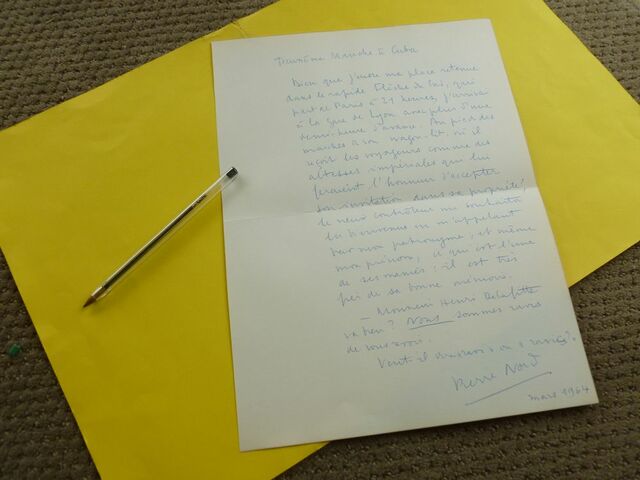 Deuxième Manche à Cuba
Bien que j'eusse ma place retenue
dans le rapide Flèche de , qui
part de Paris à 21 heures, j'arrivai
à la Gare de Lyon avec plus d'une
demi-heure d'avance. Au pied des
marches à son wagon-lit, où il
reçoit les voyageurs comme des
altesses impériales qui lui
feraient l'honneur d'accepter
son invitation dans sa propriété,
le vieux contrôleur me souhaita
la bienvenue en m'appelant
par mon patronyme, et même
mon prénom, ce qui est l'une
de ses manies ; il est très
fier de sa bonne mémoire.
— Monsieur Henri
va bien ? Nous sommes ravis
de vous avoir.
Veut-il
Pierre Nord
mars 1964